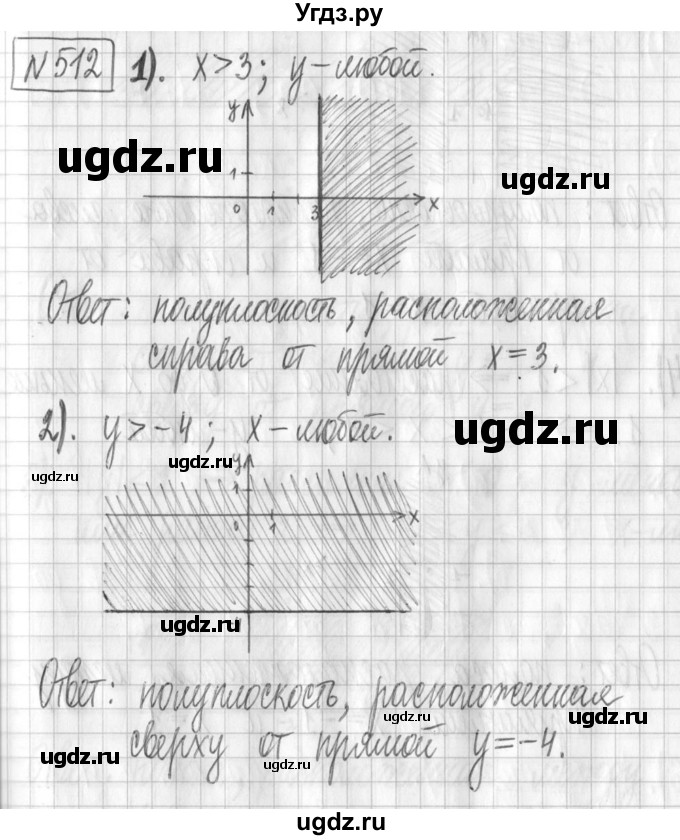 Угдз.ру
N 512 1). x>3; y – любой.
ugdz.ru
y
1
0 1 3 x
ugdz.ru
Ответ: полуплоскость, расположенная
справа от прямой x = 3.
2). y > -4; x – любой.
ugdz.ru
ugdz.ru
ugdz.ru
y
1
0 1 x
ugdz.ru
Ответ: полуплоскость, расположенная
ugdz.ru
ugdz.ru
сверху от прямой y = -4.
ugdz.ru
ugdz.ru
Угдз.ру